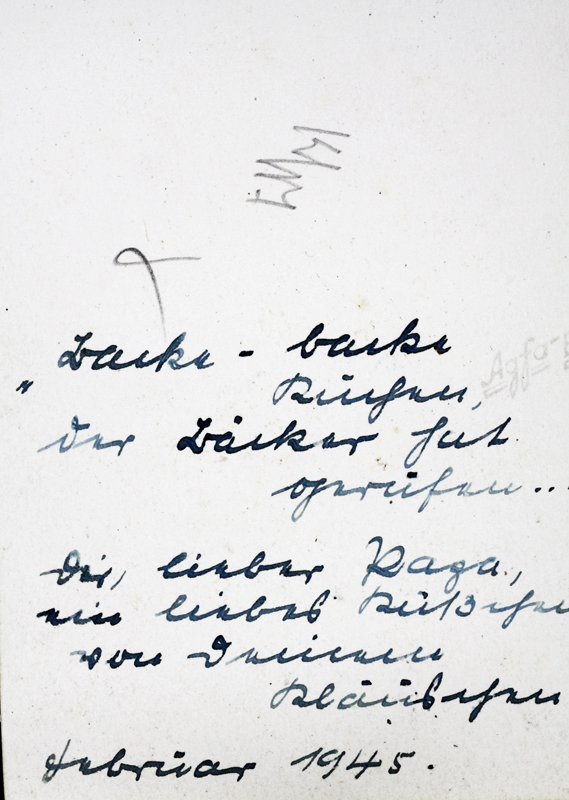 „Backe - backe
Kuchen,
der Bäcker hat
gerufen...
Dir, lieber Papa,
ein liebes Küßchen
von Deinem
Kläuschen
Februar 1945.